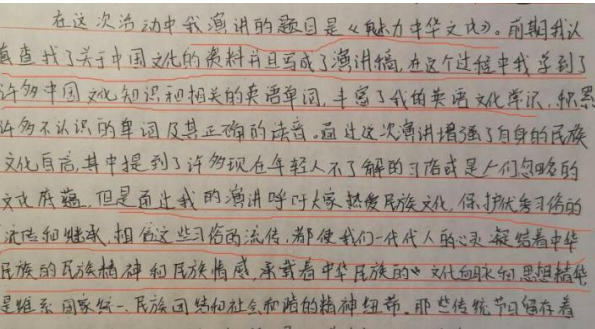 在这次活动中我演讲的题目是《魅力中华文化》。前期我认
真查找了关于中国文化的资料并且写成了演讲稿,在这个过程中我学到了
许多中国文化知识和相关的英语单词,丰富了我的英语文化学识,积累
许多不认识的单词及其正确的读音。通过这次演讲增强了自身的民族
文化自信,其中提到了许多现在年轻人不了解的习俗或是人们忽略的
文化底蕴,但是通过我的演讲呼吁大家热爱民族文化,保护优秀习俗的
流传和继承,相信这些习俗的流传,都使我们一代代人的心灵凝结着中华
民族的民族精神和民族情感,承载着中华民族的文化血脉和思想精华
是维系国家统一、民族团结和社会和谐的精神纽带。那些传统节日留存着